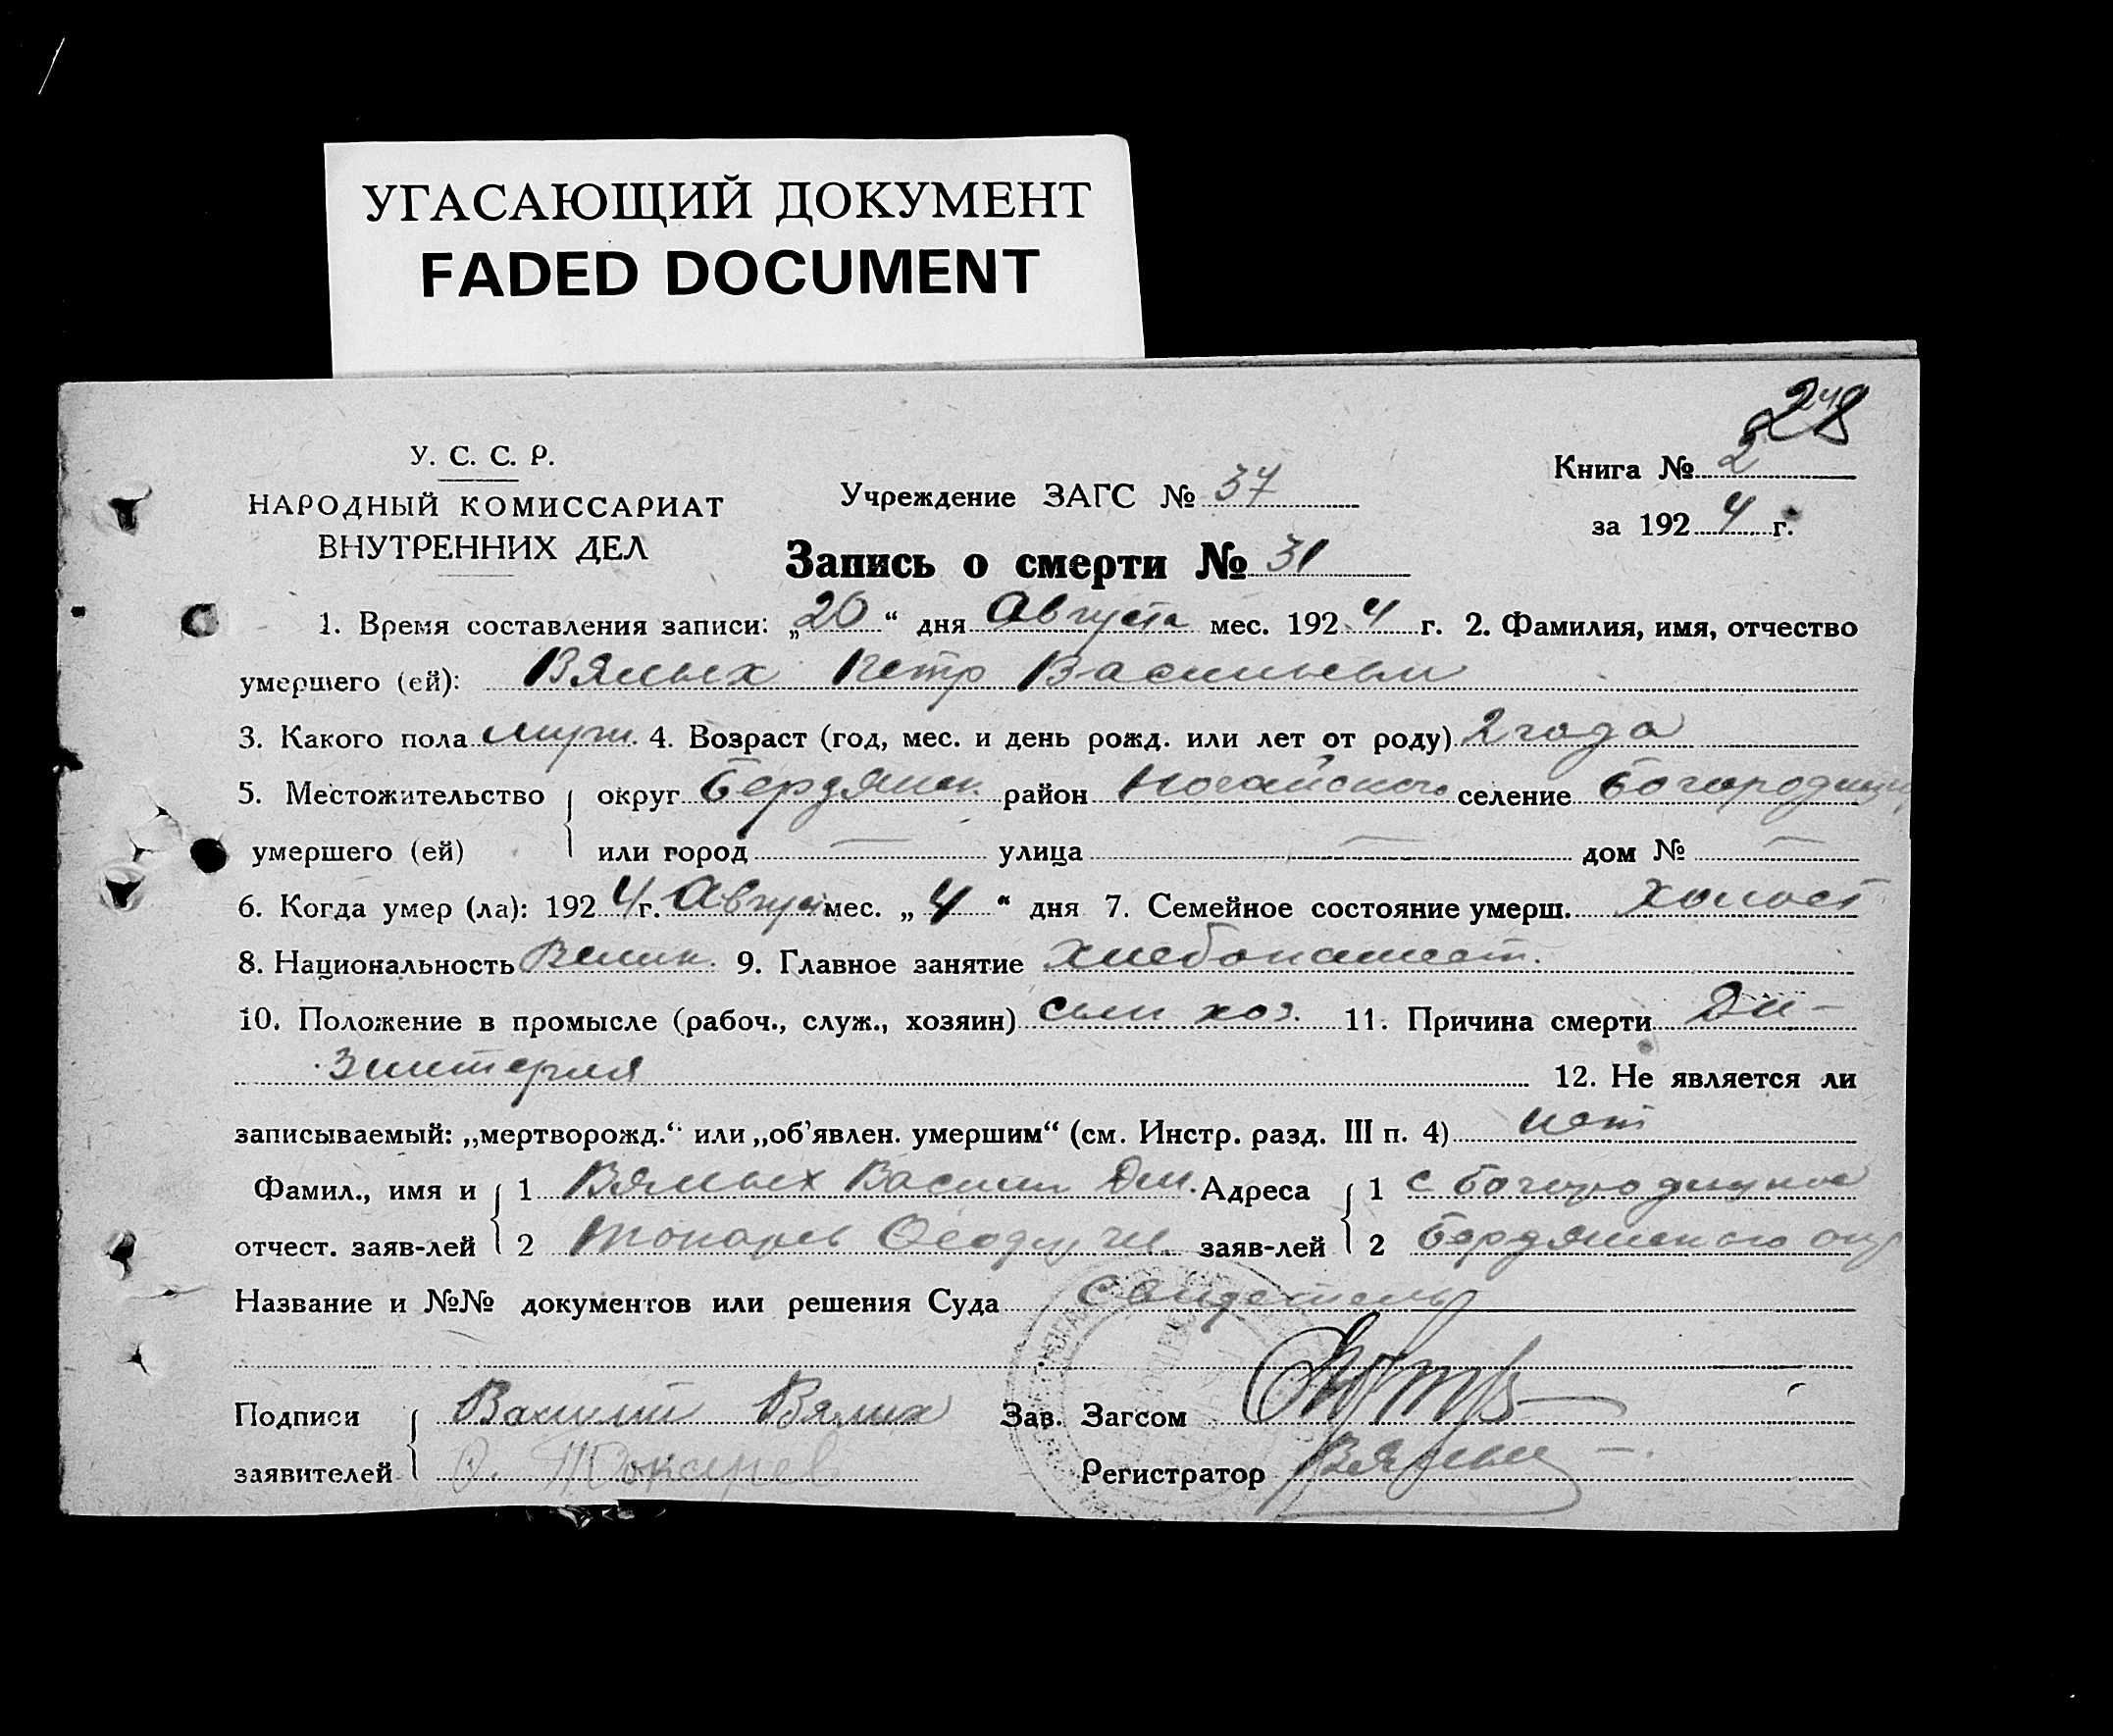 УГАСАЮЩИЙ ДОКУМЕНТ
FADED DOCUMENT
28
У. С. С. Р.
НАРОДНЫЙ КОМИССАРИАТ
ВНУТРЕННИХ ДЕЛ
Учреждение ЗАГС № 37
Книга № 2
за 1924 г.
Запись о смерти № 31
1. Время составления записи: „20“ дня Августа мес. 1924 г. 2. Фамилия, имя, отчество
умершего (ей): Вялых Петр Васильев
3. Какого пола муж. 4. Возраст (год, мес. и день рожд. или лет от роду) 2 года
5. Местожительство округ Бердянск. район Ногайского селение Богородицк
умершего (ей) или город — улица — дом № —
6. Когда умер (ла): 1924 г. Август мес. „4“ дня 7. Семейное состояние умерш. холост
8. Национальность Велик. 9. Главное занятие хлебопашест.
10. Положение в промысле (рабоч., служ., хозяин) член хоз. 11. Причина смерти Ди-
зинтерия
12. Не является ли
записываемый: „мертворожд.“ или „об'явлен. умершим“ (см. Инстр. разд. III п. 4) нет
Фамил., имя и 1 Вялых Васили Дм. Адреса 1 с Богородицкое
отчест. заяв-лей 2 Токарев заяв-лей 2 Бердянского окр
Название и №№ документов или решения Суда свидетель
Подписи Василий Вялых Зав. Загсом
заявителей Токарев Регистратор Вялых